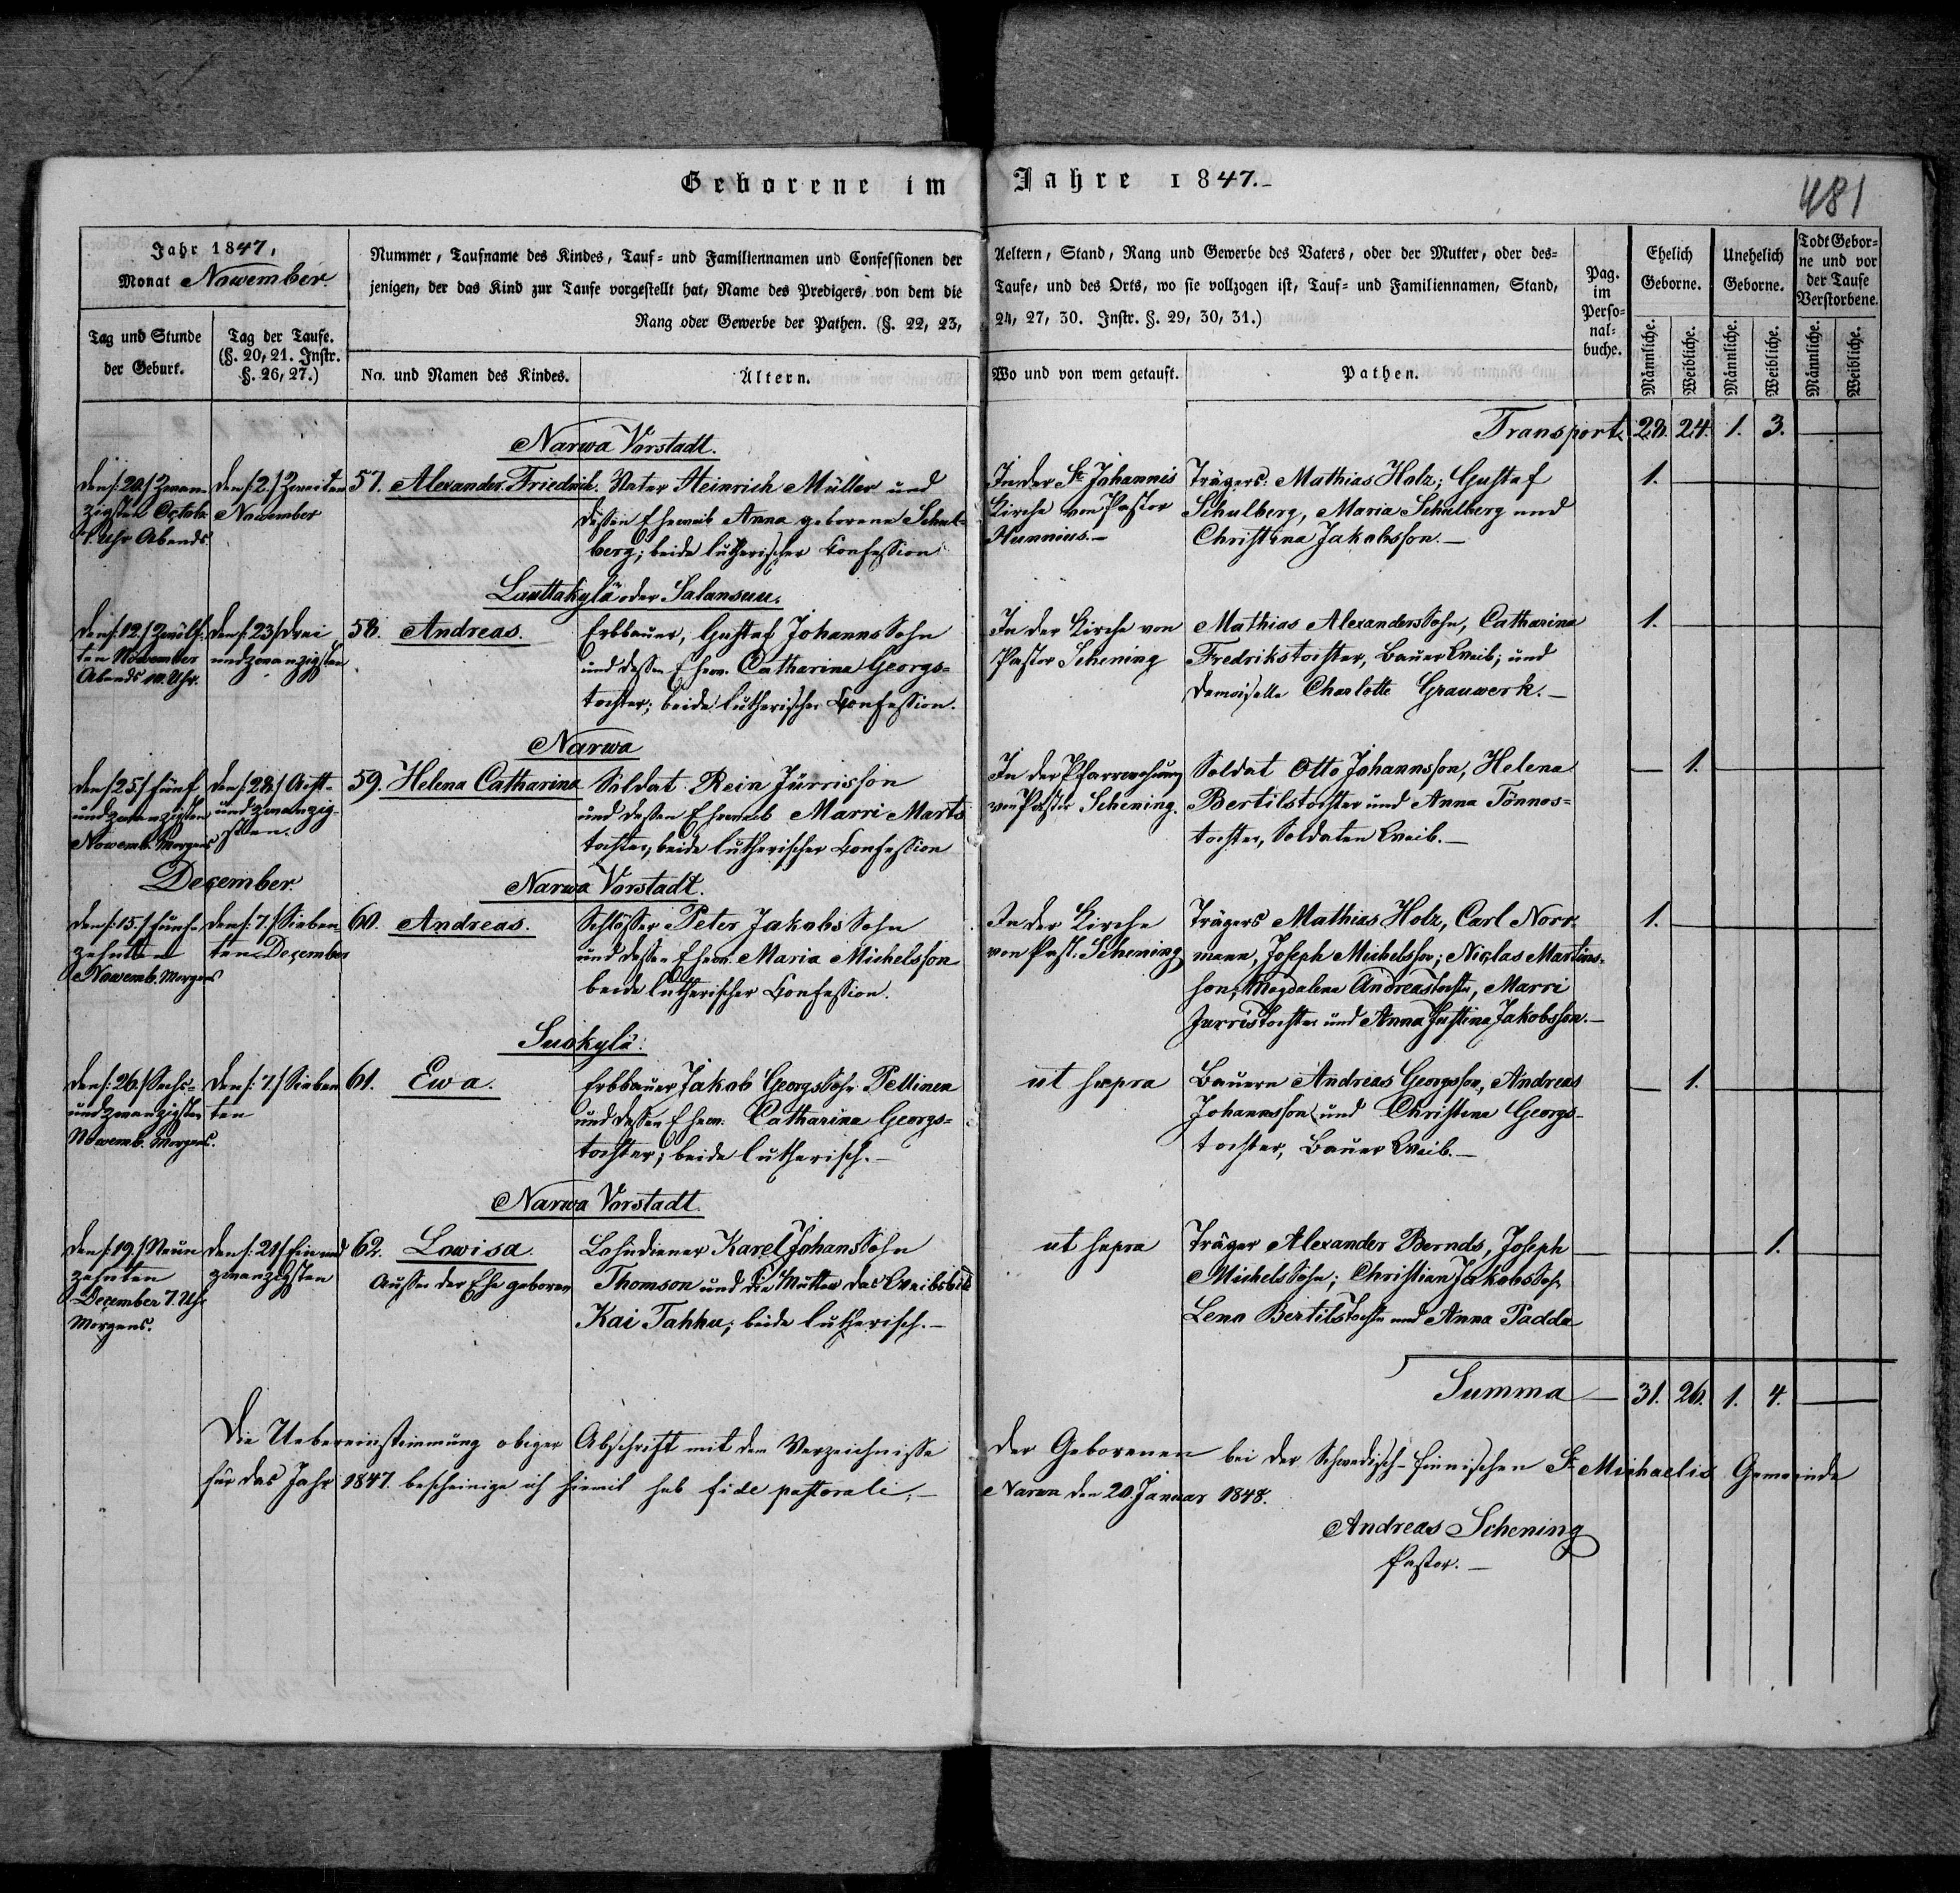 Geborene im Jahre 1847.
481
Jahr 1847,
Monat November.
Nummer, Taufname des Kindes, Tauf- und Familiennamen und Confessionen der Aeltern, Stand, Rang und Gewerbe des Vaters, oder der Mutter, oder des-
jenigen, der das Kind zur Taufe vorgestellt hat, Name des Predigers, von dem die Taufe, und des Orts, wo sie vollzogen ist, Tauf- und Familiennamen, Stand,
Rang oder Gewerbe der Pathen. (§. 22, 23, 24, 27, 30. Instr. §. 29, 30, 31.)
Pag.
im
Perso-
nal-
buche.
Ehelich
Geborne.
Unehelich
Geborne.
Todt Gebor-
ne und vor
der Taufe
Verstorbene.
Männliche.
Weibliche.
Männliche.
Weibliche.
Männliche.
Weibliche.
Tag und Stunde
der Geburt.
Tag der Taufe.
(§. 20, 21. Instr.
§. 26, 27.)
No. und Namen des Kindes.
Ältern.
Wo und von wem getauft.
Pathen.
Transport. 28. 24. 1. 3.
Narwa Vorstadt.
den /:20./ Zwan-
zigsten Octob.
Uhr Abends
den /:2./ Zweiten
November
57. Alexander Friedrich.
Vater Heinrich Müller und
dessen Eheweib Anna geborene Schul-
berg; beide lutherischer Confession
In der St. Johannis
Kirche von Pastor
Hunnius.—
Trägers Mathias Holz; Gustaf
Schulberg, Maria Schulberg und
Christina Jakobsson.—
1.
Lauttakylä oder Salansuu.
den /:12./ Zwölf-
ten November
Abends 10. Uhr.
den /:23/ drei
undzwanzigsten
58. Andreas.
Erbbauer, Gustaf Johanns Sohn
und dessen Ehew. Catharina Georgs-
tochter; beide lutherischer Confession.
In der Kirche von
Pastor Schening
Mathias Alexanders Sohn, Catharina
Fredrikstochter, Bauer Weib; und
Demoiselle Charlotte Grauwerk.—
1.
Narwa
den /25./ fünf
undzwanzigsten
Novemb. Morgens
den /:28./ Acht-
undzwanzig-
sten.
59. Helena Catharina
Soldat Rein Jürrisson
und dessen Eheweib Marri Marts
tochter, beide lutherischer Confession
In der Pfarrwohnung
von Pastor Schening.
Soldat Otto Johannsson, Helena
Bertilstochter und Anna Tönnos-
tochter, Soldaten Weib.—
1.
December.
Narwa Vorstadt.
den /:15./ fünf-
zehnten
Novemb. Morgens
den /:7./ Sieben
ten December
60. Andreas.
Schlösser Peter Jakobs Sohn
und dessen Ehew. Maria Michelsson
beide lutherischer Confession.
In der Kirche
von Past. Schening
Trägers Mathias Holz, Carl Norr-
mann, Joseph Michelsson; Niclas Martins-
son; Magdalena Andreastochter, Marri
Jurristochter und Anna Justina Jakobsson.—
1.
Suokylä.
den /:26./ Sechs-
undzwanzigsten
Novemb. Morgens.
den /:7./ Sieben
ten
61. Ewa.
Erbbauer Jakob Georgs Sohn Pellinen
und dessen Ehew. Catharina Georgs-
tochter; beide lutherisch.—
ut supra
Bauern Andreas Georgsson, Andreas
Johannsson und Christina Georgs-
tochter, Bauer Weib.—
1.
Narwa Vorstadt.
den /:19./ Neun
zehnten
December 7. Uhr
Morgens.
den /:21/ Ein und
zwanzigsten
62. Lowisa.
Ausser der Ehe geboren
Lohndiener Karel Johans Sohn
Thomson und die Mutter das Weibsbild
Kai Tahhu; beide lutherisch.—
ut supra
Träger Alexander Bernds, Joseph
Michels Sohn; Christian Jakobs Sohn
Lena Bertilstochter und Anna Padda
1.
Summa — 31. 26. 1. 4.
Die Uebereinstimmung obiger Abschrift mit dem Verzeichnisse der Geborenen bei der Schwedisch-finnischen St. Michaelis Gemeinde
für das Jahr 1847. bescheinige ich hiemit sub fide pastorali.— Narwa den 20. Januar 1848.
Andreas Schening
Pastor.—